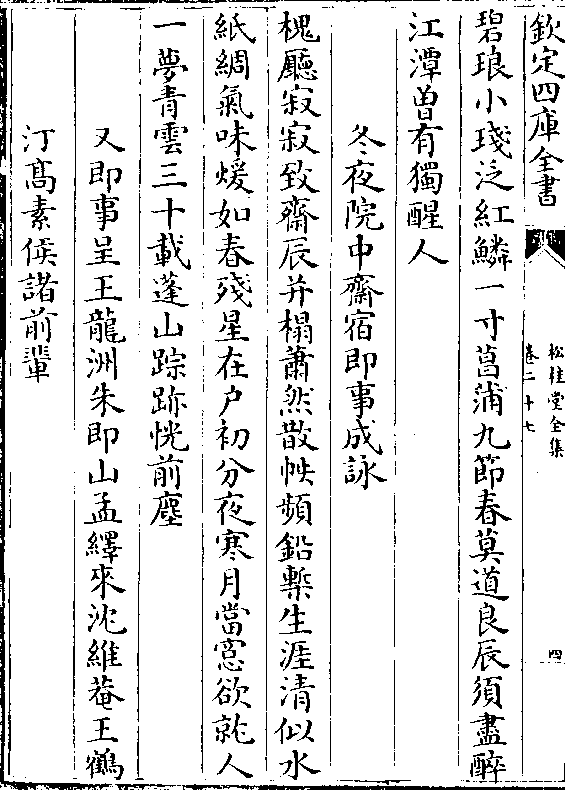 欽定四庫全書
松桂堂全集
卷二十七
四
碧琅小琖泛紅鱗一寸菖蒲九節春莫道良辰須盡醉
江潭曽有獨醒人
冬夜院中齋宿即事成詠
槐廳寂寂致齋辰并榻蕭然散帙頻鉛槧生涯清似水
紙綢氣味煖如春殘星在户初分夜寒月當窻欲就人
一夢青雲三十載蓬山踪跡恍前塵
又即事呈王龍洲朱即山孟繹來沈維菴王鶴
汀髙素侯諸前輩